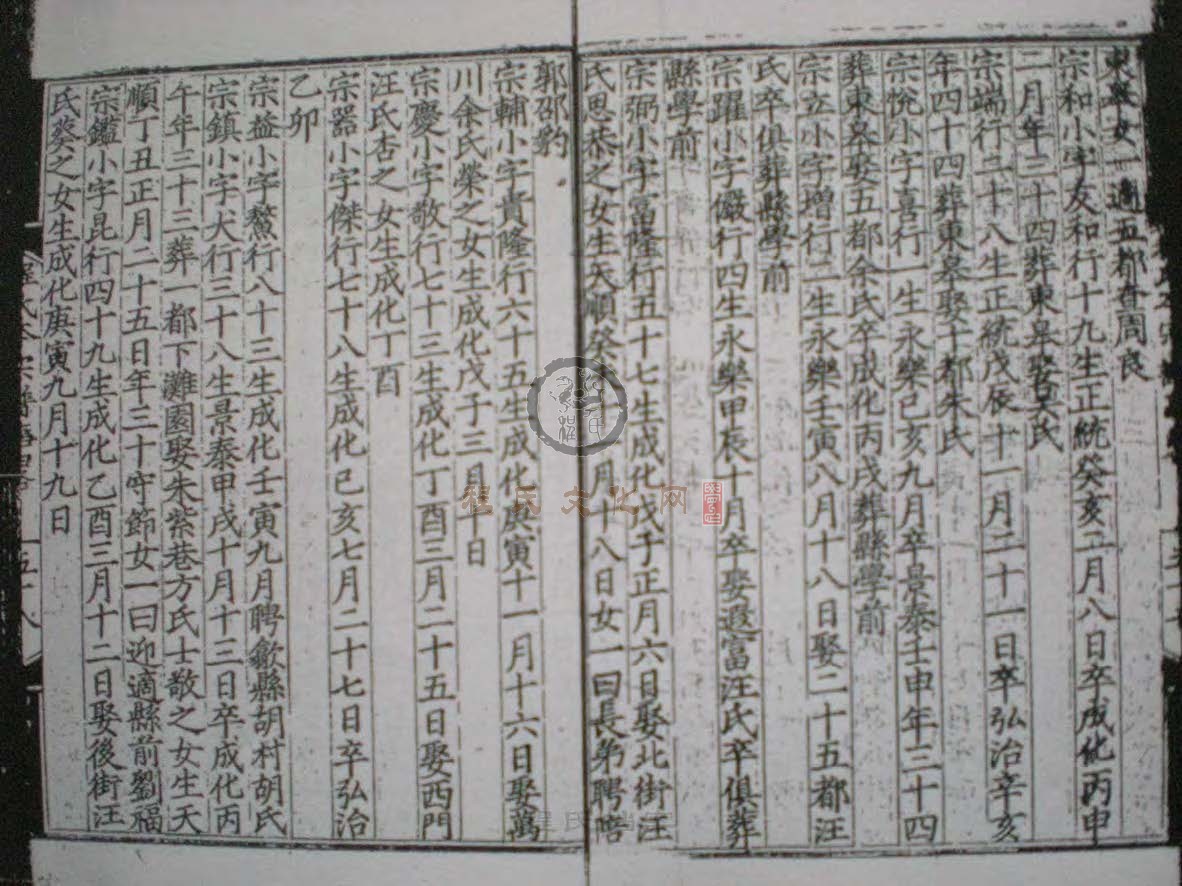 東臯女一適五都李周良
宗和小字友和行十九生正統癸亥二月八日卒成化丙申
二月年三十四葬東臯娶吴氏
宗端行三十八生正統戊辰十一月二十一日卒弘治辛亥
年四十四葬東臯娶十都朱氏
宗悦小字喜行一生永樂己亥九月卒景泰壬申年三十四
葬東臯娶五都余氏卒成化丙戌葬縣學前
宗立小字增行二生永樂壬寅八月十八日娶二十五都汪
氏卒俱葬縣學前
宗躍小字儼行四生永樂甲辰十月卒娶遐富汪氏卒俱葬
縣學前
宗弼小字富隆行五十七生成化戊子正月六日娶北街汪
氏思恭之女生天順癸未十一月十八日女一曰長弟聘陪
郭邵豹
宗輔小字貴隆行六十五生成化庚寅十一月十六日娶萬
川余氏榮之女生成化戊子三月十日
宗慶小字敬行七十三生成化丁酉三月二十五日娶西門
汪氏杏之女生成化丁酉
宗器小字傑行七十八生成化己亥七月二十七日卒弘治
乙卯
宗益小字鰲行八十三生成化壬寅九月聘歙縣胡村胡氏
宗鎮小字犬行三十八生景泰甲戌十月十三日卒成化丙
午年三十三葬一都下灘園娶朱紫巷方氏士敬之女生天
順丁丑正月二十五日年三十守節女一曰迎適縣前劉福
宗鑑小字昆行四十九生成化乙酉三月十二日娶後街汪
氏葵之女生成化庚寅九月十九日
五十八
程氏文化网